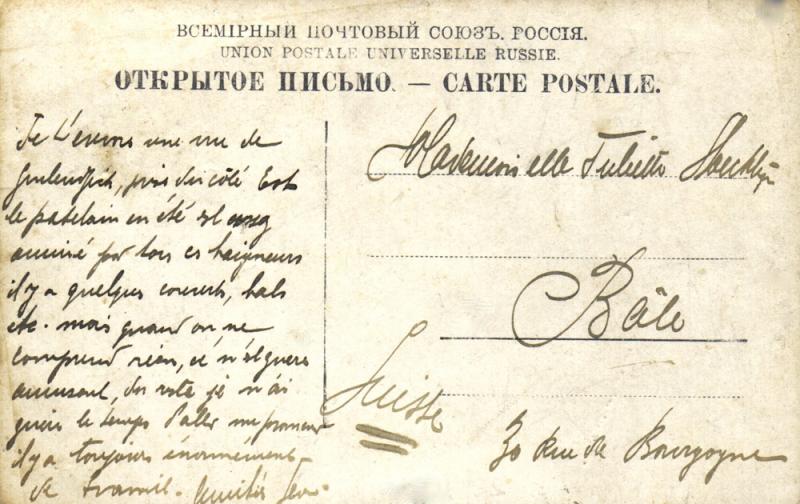 ВСЕМІРНЫЙ ПОЧТОВЫЙ СОЮЗЪ. РОССІЯ.
UNION POSTALE UNIVERSELLE RUSSIE.
ОТКРЫТОЕ ПИСЬМО. — CARTE POSTALE.
Je t'envoie une vue de
pris du côté Est
le patelin en été est
animé par tous ces baigneurs
il y a quelques concerts, bals
etc. mais quand on ne
comprend rien, ce n'est guère
amusant, du reste je n'ai
guère le temps d'aller me promener
il y a toujours énormément
de travail. Amitiés
Mademoiselle Juliette
Bâle
Suisse
30 Rue de Bourgogne